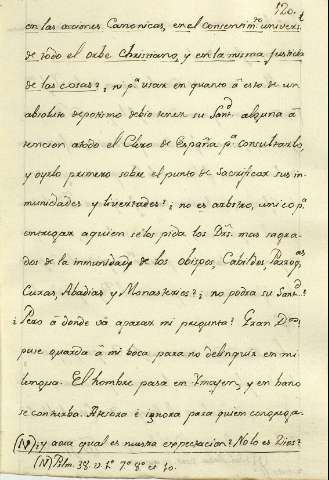 120.
en las acciones Canonicas, en el consentim.to univers.l
de todo el orbe Christiano, y en la misma Justicia
de las cosas?; ni p.a usar en quanto â esto de un
absoluto depotismo debio tener su Sant.d alguna â
tencion atodo el Clero de España p.a consultarlo,
y oyrlo primero sobre el punto de sacrificar sus in
munidades y livertades?; no es arbitro, unico p.a
entregar aquien selos pida los Dr̃s. mas sagra
dos de la inmunidad de los obispos, Cabildos Parroq.as
Curas, Abadias y Monasterios?; no podra su Sant.d?
¿Pero â donde vâ aparar mi pregunta? Gran Dios,
puse guarda â mi boca para no delinquir en mi
lengua. El hombre pasa en Ymajen, y en bano
se conturba. Atesora è ignora para quien congrega.
(N); y aora qual es nuestra expectacion? No lo es Dios?
(N) Pslm. 38. v. 1.o 7.o 8.o et 10.